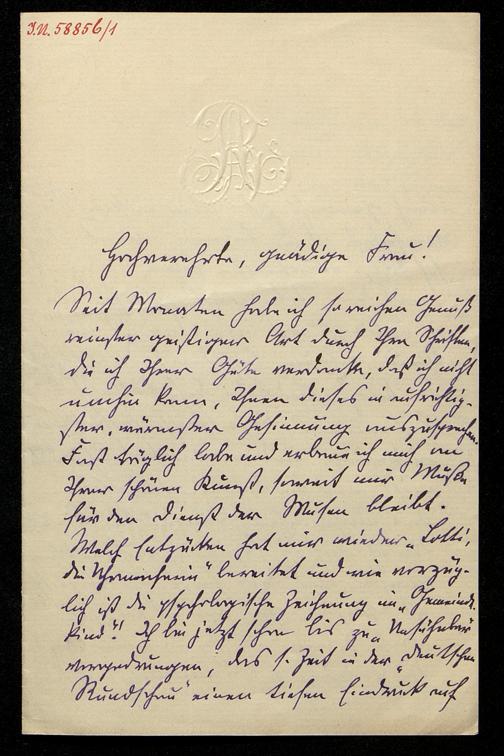 J.N. 58856/1
Hochverehrte, gnädige Frau!
Seit Monaten habe ich so reichen Genuß
reinster geistigster Art durch Ihre Schriften,
die ich Ihrer Güte verdanke, daß ich nicht
umhin kann, Ihnen dieses in aufrichtig-
ster, wärmster Gesinnung auszusprechen.
Fast täglich labe und erbaue ich mich an
Ihrer schönen Kunst, soweit mir Muße
für den Dienst der Musen bleibt.
Welch Entzücken hat mir wieder „Lotti,
die Uhrmacherin" bereitet und wie vorzüg-
lich ist die psychologische Zeichnung im „Gemeinde-
kind"! Ich bin jetzt schon bis zu „Unsühnbar"
vorgedrungen, das s. Zeit in der „Deutschen
Rundschau" einen tiefen Eindruck auf